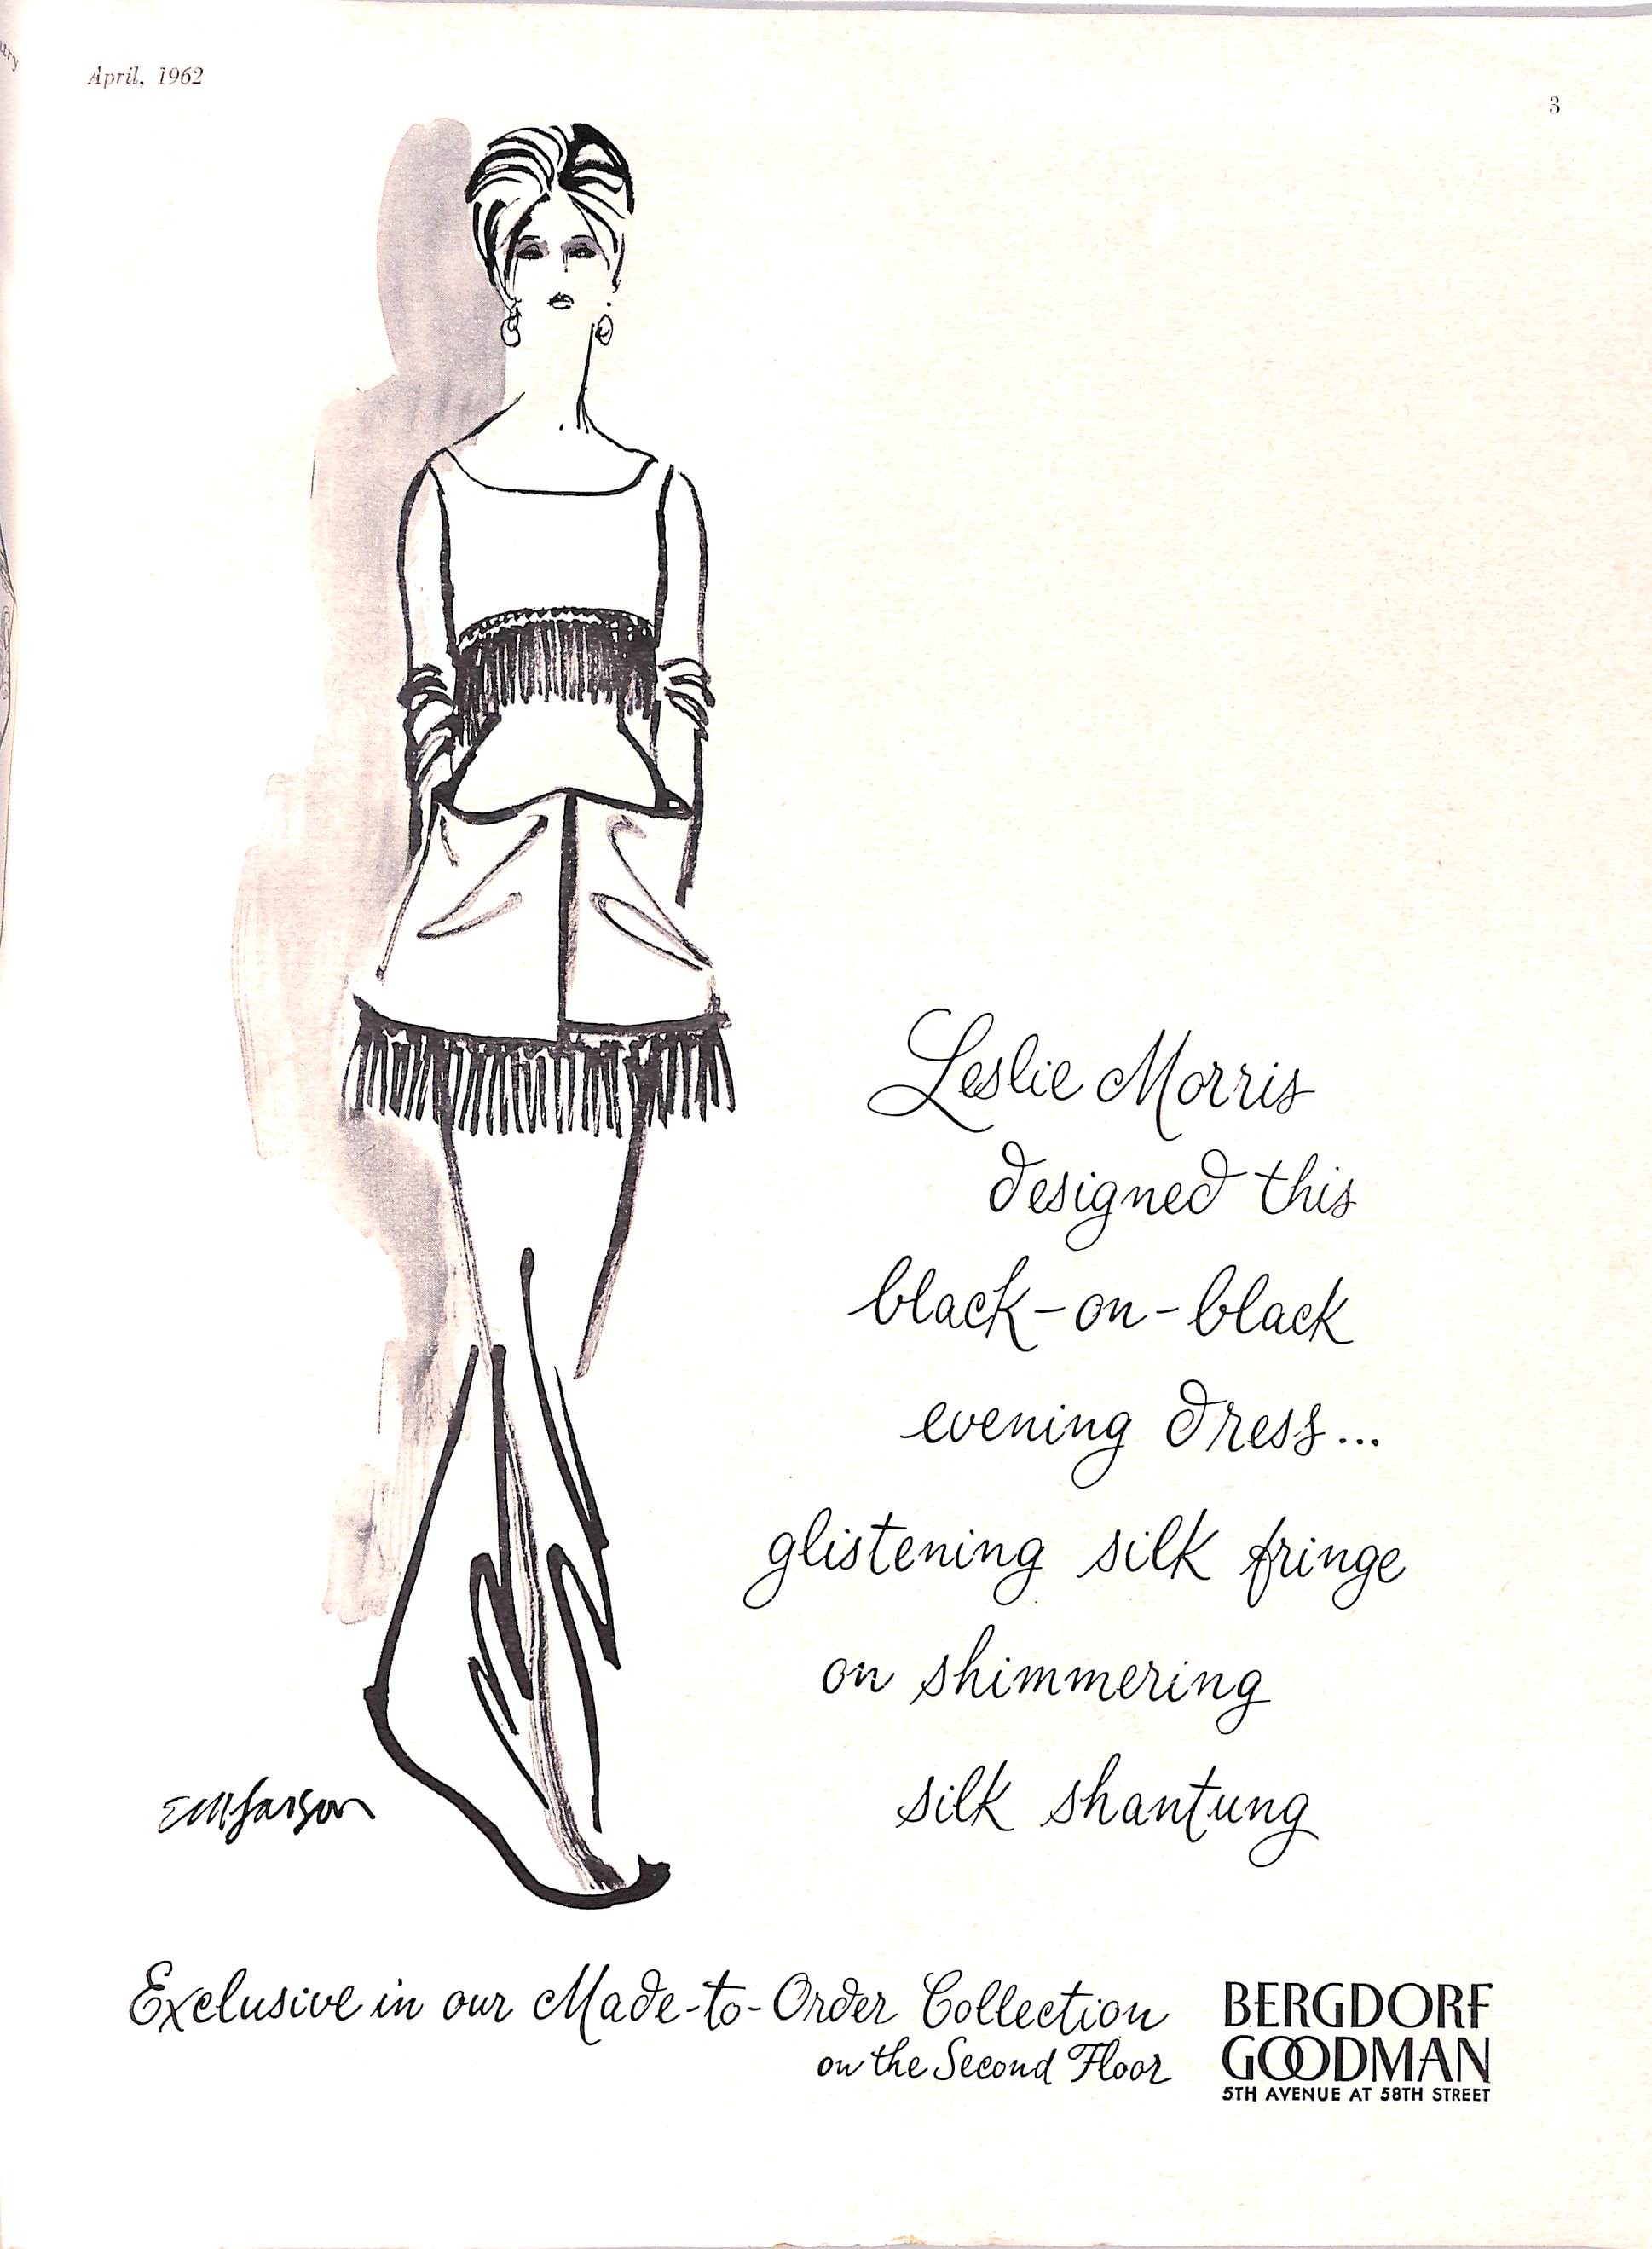 April, 1962
3
Leslie Morris
designed this
black-on-black
evening dress...
glistening silk fringe
on shimmering
silk shantung
Exclusive in our Made-to-Order Collection
on the Second Floor
BERGDORF
GOODMAN
5TH AVENUE AT 58TH STREET